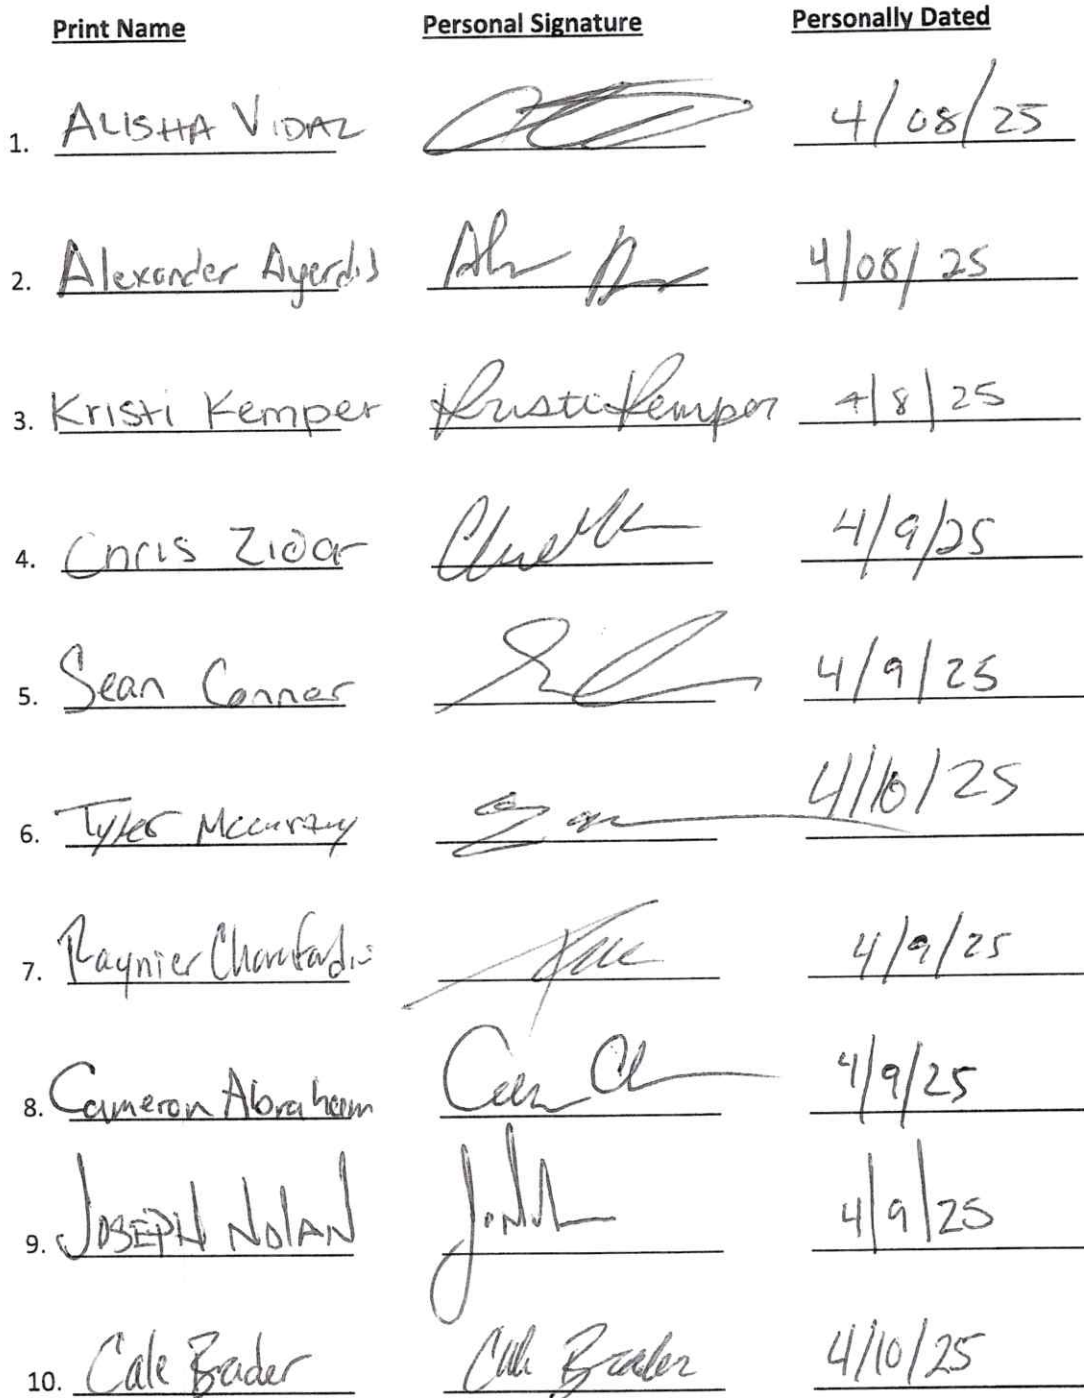 Print Name Personal Signature Personally Dated
1. ALISHA VIDAL 4/08/25
2. Alexander Ayerdis 4/08/25
3. Kristi Kemper Kristi Kemper 4/8/25
4. Chris Zidar 4/9/25
5. Sean Connor 4/9/25
6. Tyler 4/10/25
7. Raynier 4/9/25
8. Cameron Abraham 4/9/25
9. JOSEPH NOLAN 4/9/25
10. Cale Brader Cale Brader 4/10/25